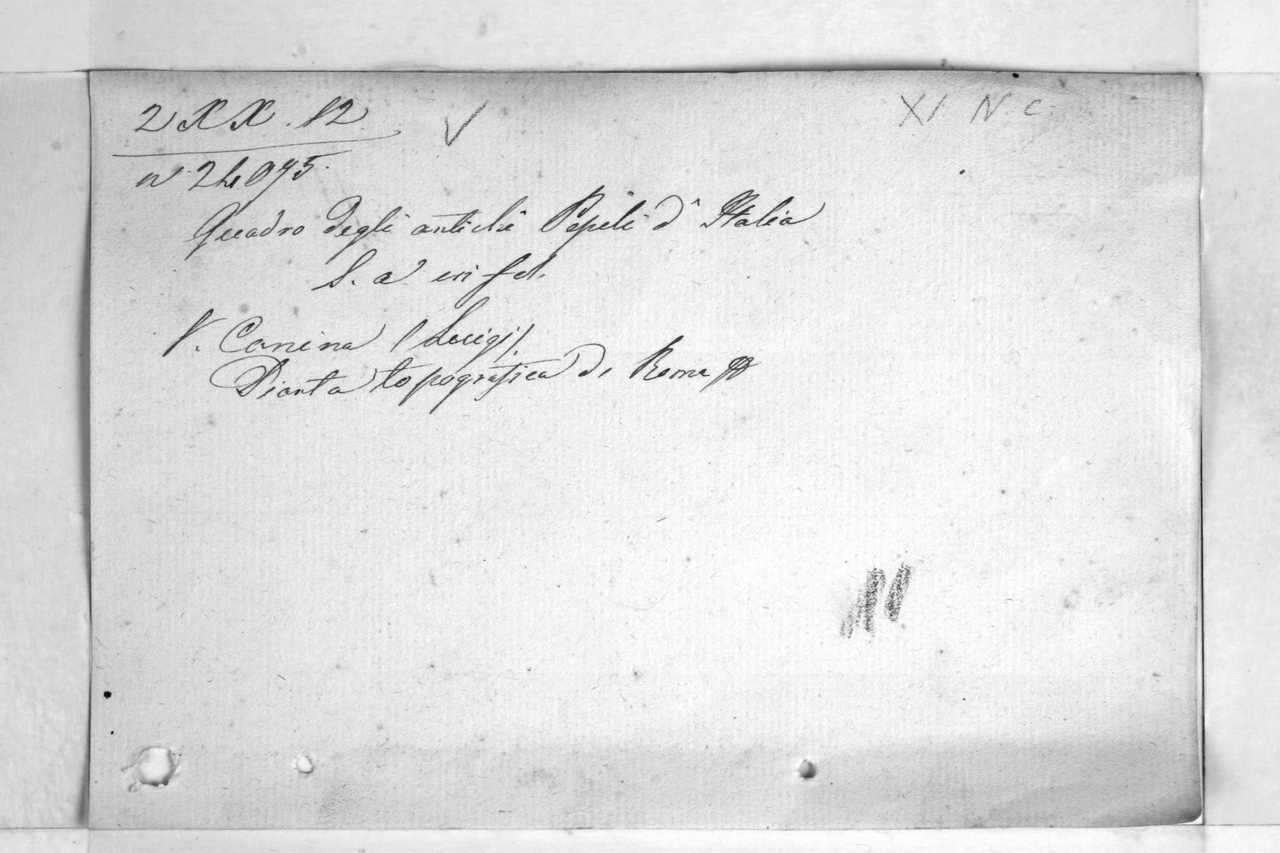 2 XX. 12 XI N c.
n. 24095.
Quadro degli antichi Popoli d'Italia
S. a in fol.
V. Canina (Luigi).
Pianta topografica di Roma